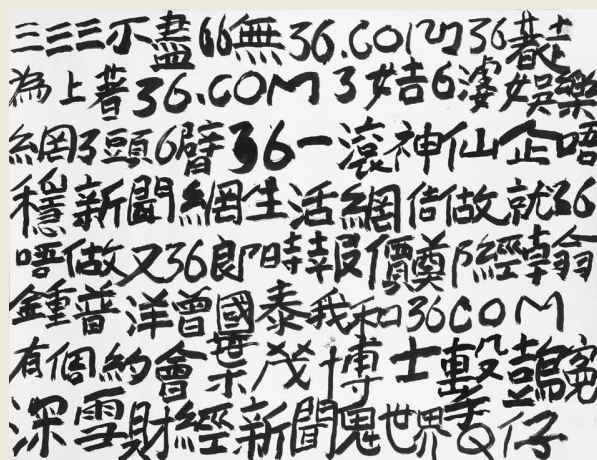 三三三不盡66無36.COM36裠
為上著36.COM3姑6婆娛樂
網3頭6臂36一滾神仙企唔
穩新聞網生活網佶做就36
唔做又36郎時報價奠阝經翰翁
鍾普洋曾國泰我和36COM
有個約會葉茂博士 冤
深雪財經新聞鬼世界Q仔